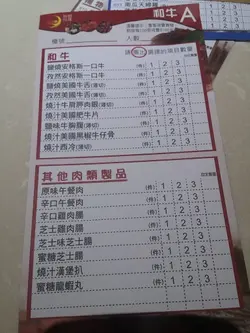 和牛A
檯號
人數
和牛
請圈出所選的項目數量
鹽燒安格斯一口牛 (件) 1 2 3
孜然安格斯一口牛 (件) 1 2 3
鹽燒美國牛舌(薄切) (件) 1 2 3
孜然美國牛舌(薄切) (件) 1 2 3
燒汁牛肩胛肉眼(薄切) (件) 1 2 3
燒汁美國肥牛片 (件) 1 2 3
鹽味牛胸腹(薄切) (件) 1 2 3
燒汁美國黑椒牛仔骨 (件) 1 2 3
燒汁西冷(薄切) (件) 1 2 3
其他肉類製品
原味午餐肉 (件) 1 2 3
辛口午餐肉 (件) 1 2 3
辛口雞肉腸 (件) 1 2 3
芝士雞肉腸 (件) 1 2 3
芝士味芝士腸 (件) 1 2 3
蜜糖芝士腸 (件) 1 2 3
燒汁漢堡扒 (件) 1 2 3
蜜糖龍蝦丸 (件) 1 2 3